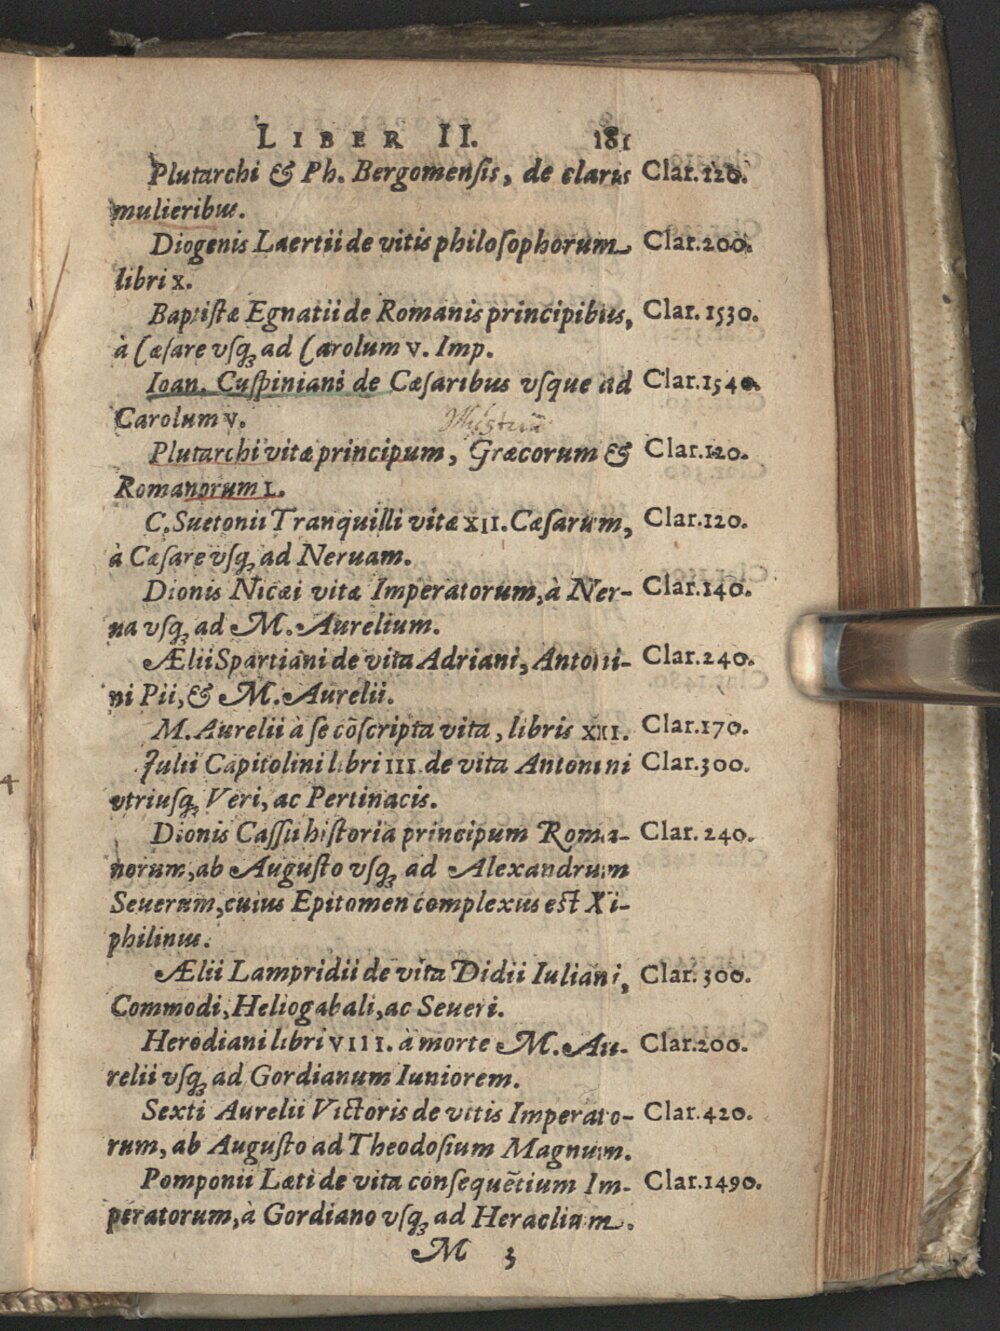 LIBER II. 181
Plutarchi & Ph. Bergomensis, de claris Clar.120.
mulieribus.
Diogenis Laertii de vitis philosophorum Clar.200.
libri x.
Baptistæ Egnatii de Romanis principibus, Clar. 1530.
à Cæsare vsq; ad Carolum v. Imp.
Ioan. Cuspiniani de Cæsaribus vsque ad Clar.1540.
Carolum v.
Plutarchi vitæ principum, Græcorum & Clar.120.
Romanorum L.
C. Suetonii Tranquilli vitæ XII. Cæsarum, Clar.120.
à Cæsare vsq; ad Neruam.
Dionis Nicæi vitæ Imperatorum, à Ner- Clar.140.
ua vsq; ad M. Aurelium.
Ælii Spartiani de vita Adriani, Antoni- Clar.240.
ni Pii, & M. Aurelii.
M. Aurelii à se cōscripta vita, libris XII. Clar.170.
Julii Capitolini libri III de vita Antonini Clar.300.
vtriusq; Veri, ac Pertinacis.
Dionis Cassii historia principum Roma- Clar. 240.
norum, ab Augusto vsq; ad Alexandrum
Seuerum, cuius Epitomen complexus est Xi-
philinus.
Ælii Lampridii de vita Didii Iuliani, Clar. 300.
Commodi, Heliogabali, ac Seueri.
Herodiani libri VIII. à morte M. Au- Clar.200.
relii vsq; ad Gordianum Iuniorem.
Sexti Aurelii Victoris de vitis Imperato- Clar.420.
rum, ab Augusto ad Theodosium Magnum.
Pomponii Læti de vita consequētium Im- Clar.1490.
peratorum, à Gordiano vsq; ad Heraclium.
M 3